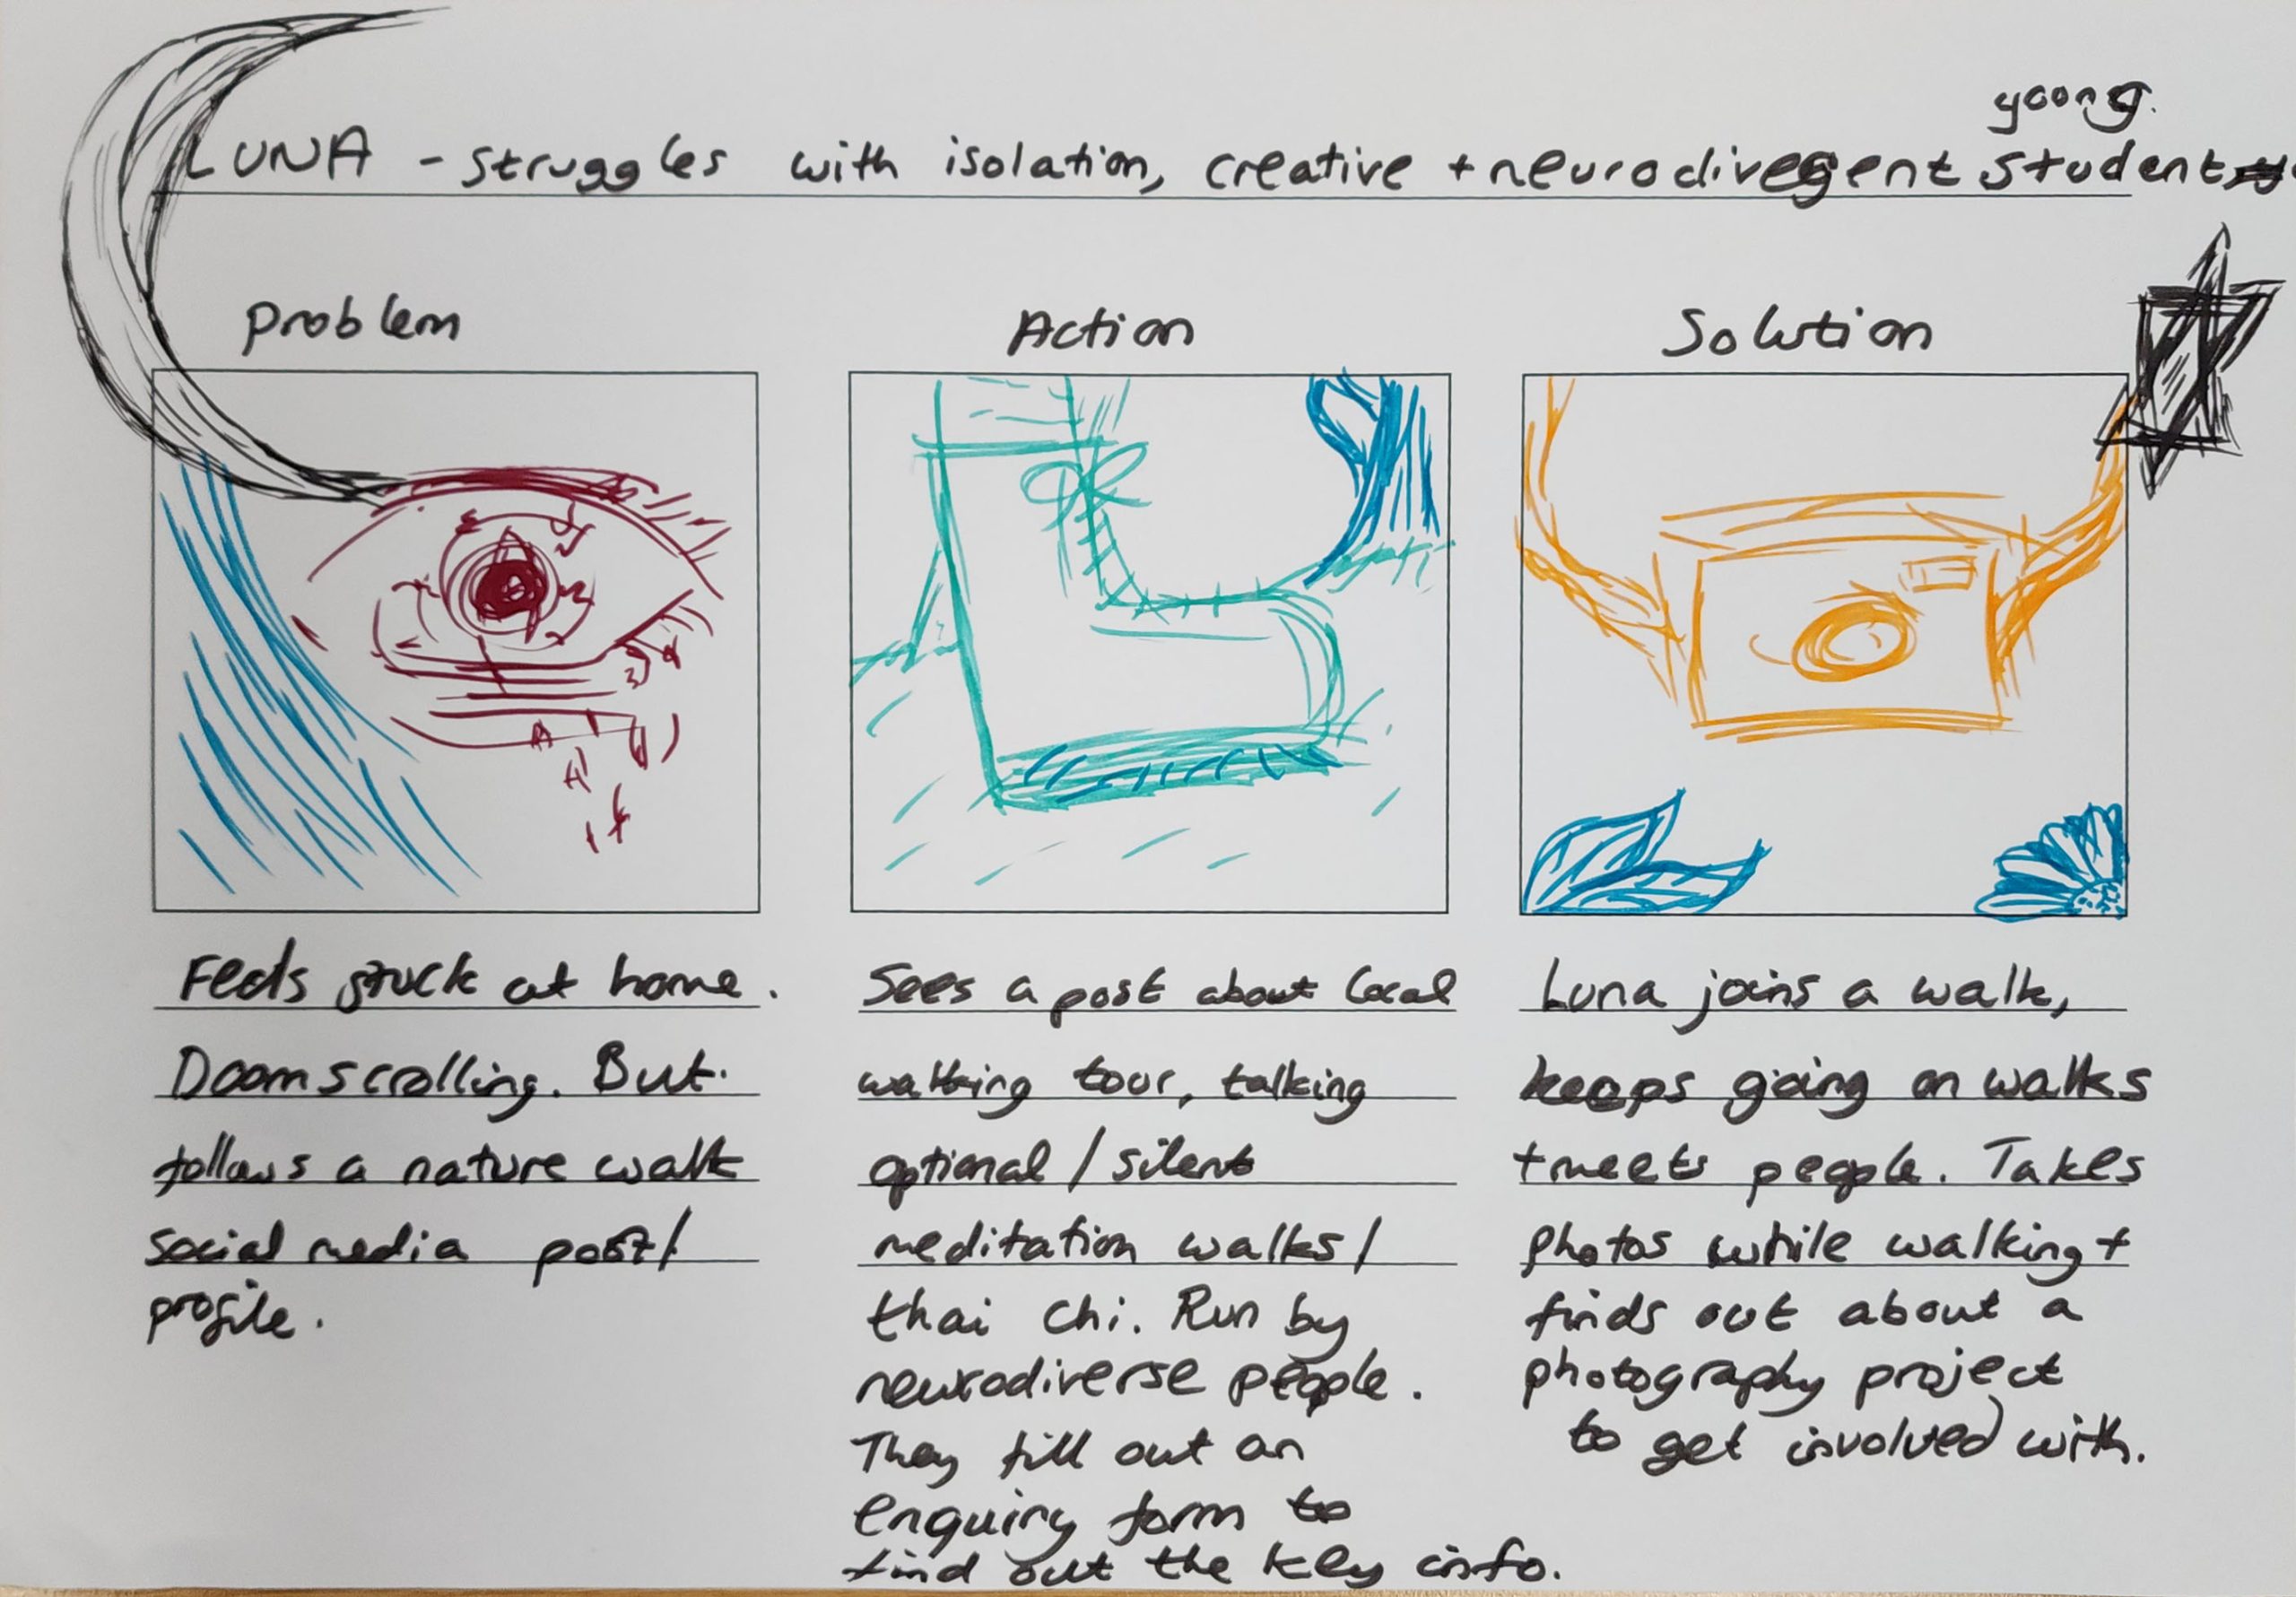 young.
LUNA - struggles with isolation, creative + neurodivergent student
Problem
Feels stuck at home.
Doomscrolling. But
follows a nature walk
social media post/
profile.
Action
Sees a post about local
walking tour, talking
optional / silent
meditation walks /
thai chi. Run by
neurodiverse people.
They fill out an
enquiry form to
find out the key info.
Solution
Luna joins a walk,
keeps going on walks
+ meets people. Takes
photos while walking +
finds out about a
photography project
to get involved with.